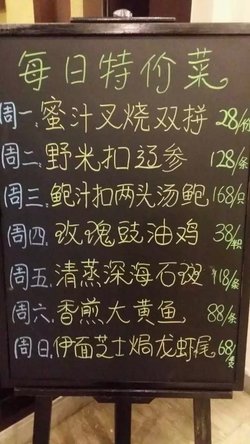 每日特价菜
周一.蜜汁叉烧双拼 28/份
周二.野米扣辽参 128/条
周三.鲍汁扣两头汤鲍 168/只
周四.玫瑰豉油鸡 38/例
周五.清蒸深海石斑 118/条
周六.香煎大黄鱼 88/条
周日.伊面芝士焗龙虾尾 68/